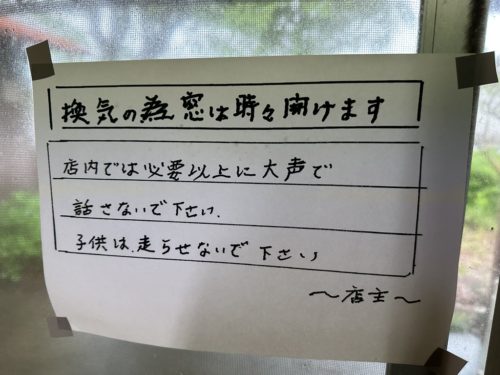 換気の為窓は時々開けます
店内では必要以上に大声で
話さないで下さい.
子供は.走らせないで下さい
〜店主〜